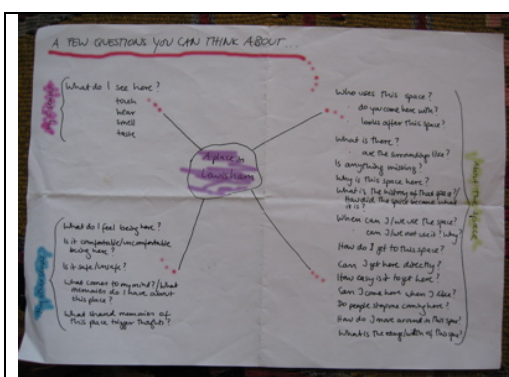 A FEW QUESTIONS YOU CAN THINK ABOUT...
What do I see here?
touch
hear
smell
taste
A place in
Lewisham
What do I feel being here?
Is it comfortable/uncomfortable
being here?
Is it safe/unsafe?
What comes to my mind?/What
memories do I have about
this place?
What shared memories of
this place trigger thoughts?
Who uses this space?
do you come here with?
looks after this space?
What is there?
are the surroundings like?
Is anything missing?
Why is this space here?
What is the history of that space?/
How did the space become what
it is?
When can I/we use the space?
can I/we not use it? Why?
How do I get to this space?
Can I get here directly?
How easy is it to get here?
Can I come here when I like?
Do people stop me coming here?
How do I move around in this space?
What is the /width of this space?
About the space